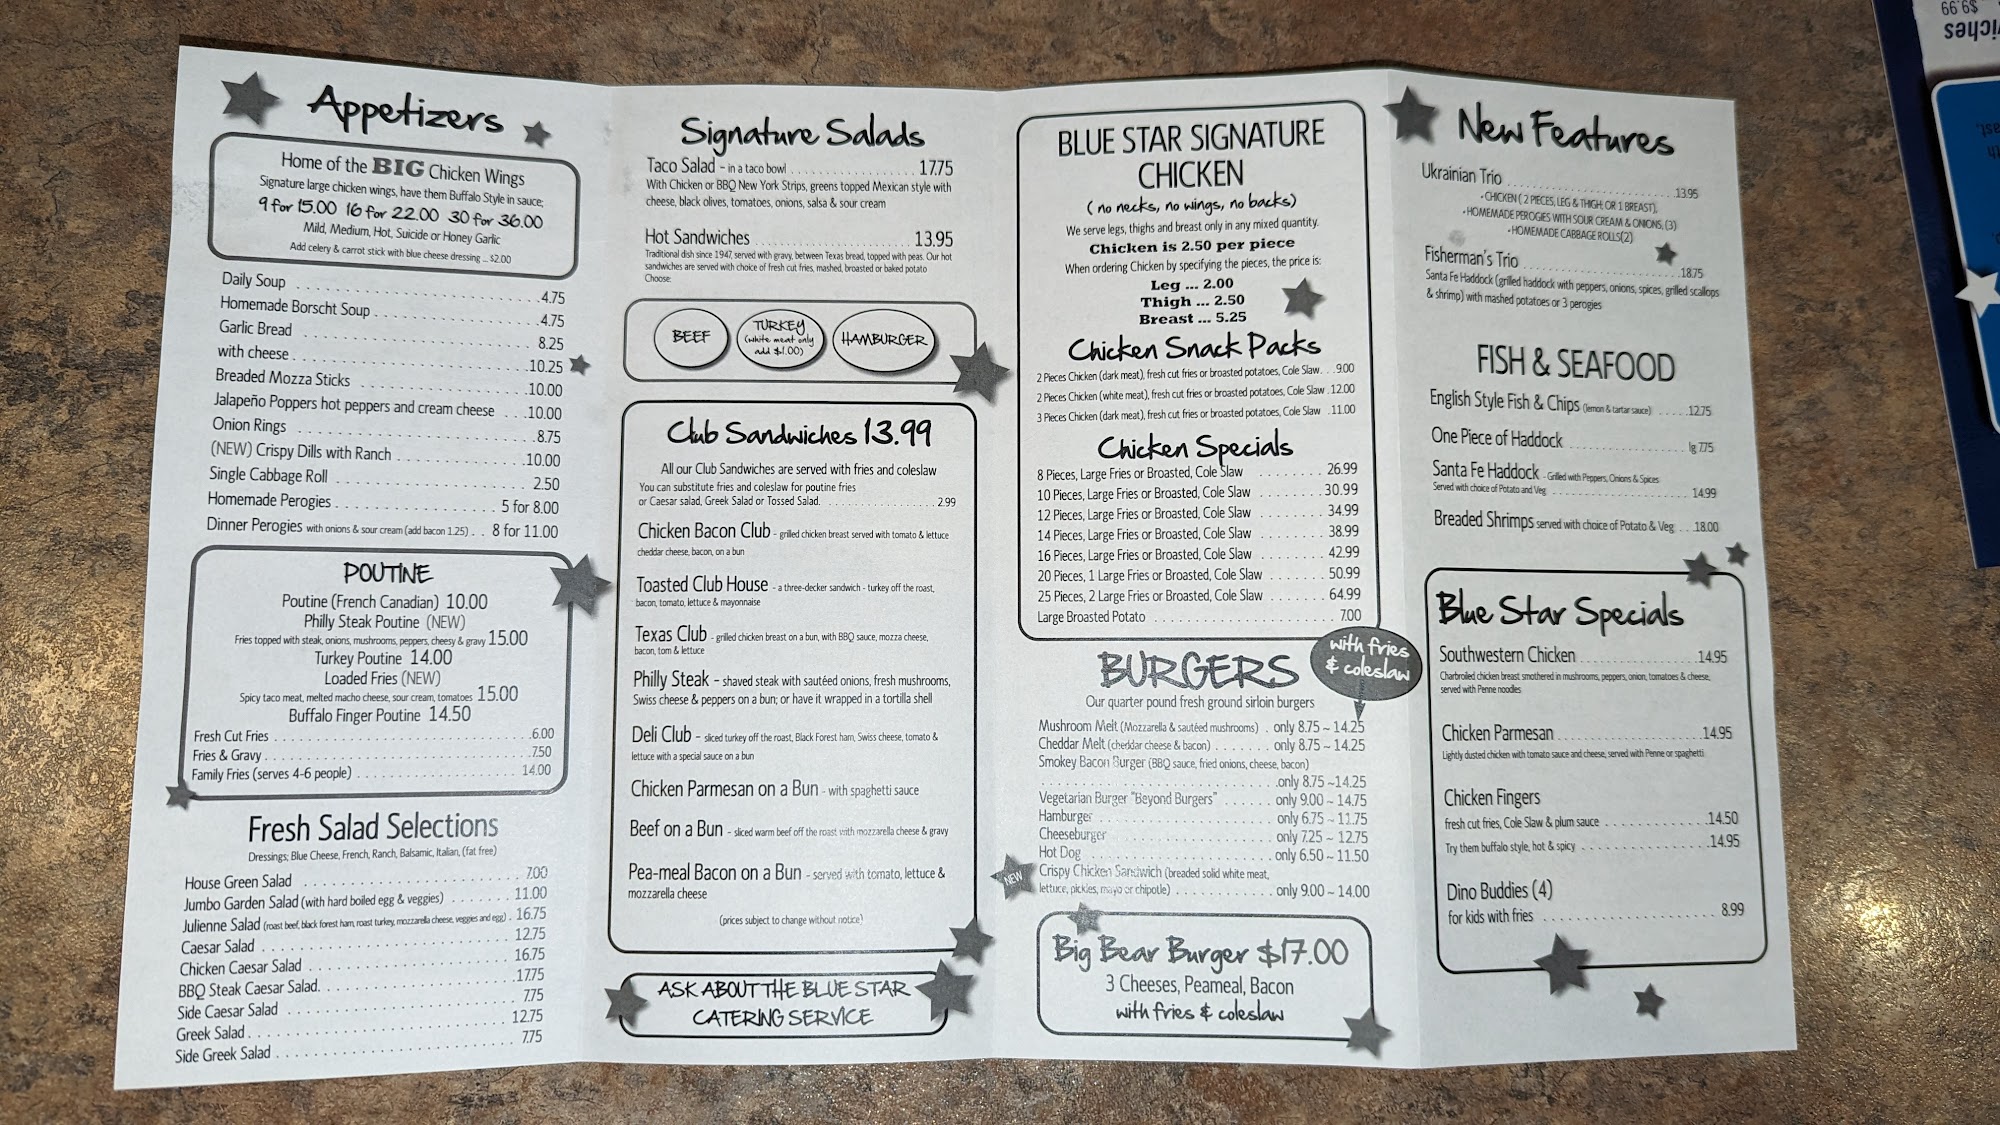 Appetizers
Home of the BIG Chicken Wings
Signature large chicken wings, have them Buffalo Style in sauce;
9 for 15.00 16 for 22.00 30 for 36.00
Mild, Medium, Hot, Suicide or Honey Garlic
Add celery & carrot stick with blue cheese dressing ... $2.00
Daily Soup 4.75
Homemade Borscht Soup 4.75
Garlic Bread 8.25
with cheese 10.25
Breaded Mozza Sticks 10.00
Jalapeño Poppers hot peppers and cream cheese 10.00
Onion Rings 8.75
(NEW) Crispy Dills with Ranch 10.00
Single Cabbage Roll 2.50
Homemade Perogies 5 for 8.00
Dinner Perogies with onions & sour cream (add bacon 1.25) 8 for 11.00
POUTINE
Poutine (French Canadian) 10.00
Philly Steak Poutine (NEW)
Fries topped with steak, onions, mushrooms, peppers, cheesy & gravy 15.00
Turkey Poutine 14.00
Loaded Fries (NEW)
Spicy taco meat, melted macho cheese, sour cream, tomatoes 15.00
Buffalo Finger Poutine 14.50
Fresh Cut Fries 6.00
Fries & Gravy 7.50
Family Fries (serves 4-6 people) 14.00
Fresh Salad Selections
Dressings; Blue Cheese, French, Ranch, Balsamic, Italian, (fat free)
House Green Salad 7.00
Jumbo Garden Salad (with hard boiled egg & veggies) 11.00
Julienne Salad (roast beef, black forest ham, roast turkey, mozzarella cheese, veggies and egg) 16.75
Caesar Salad 12.75
Chicken Caesar Salad 16.75
BBQ Steak Caesar Salad 17.75
Side Caesar Salad 7.75
Greek Salad 12.75
Side Greek Salad 7.75
Signature Salads
Taco Salad - in a taco bowl 17.75
With Chicken or BBQ New York Strips, greens topped Mexican style with
cheese, black olives, tomatoes, onions, salsa & sour cream
Hot Sandwiches 13.95
Traditional dish since 1947, served with gravy, between Texas bread, topped with peas. Our hot
sandwiches are served with choice of fresh cut fries, mashed, broasted or baked potato
Choose:
BEEF
TURKEY
(white meat only
add $1.00)
HAMBURGER
Club Sandwiches 13.99
All our Club Sandwiches are served with fries and coleslaw
You can substitute fries and coleslaw for poutine fries
or Caesar salad, Greek Salad or Tossed Salad. 2.99
Chicken Bacon Club - grilled chicken breast served with tomato & lettuce
cheddar cheese, bacon, on a bun
Toasted Club House - a three-decker sandwich - turkey off the roast,
bacon, tomato, lettuce & mayonnaise
Texas Club - grilled chicken breast on a bun, with BBQ sauce, mozza cheese,
bacon, tom & lettuce
Philly Steak - shaved steak with sautéed onions, fresh mushrooms,
Swiss cheese & peppers on a bun; or have it wrapped in a tortilla shell
Deli Club - sliced turkey off the roast, Black Forest ham, Swiss cheese, tomato &
lettuce with a special sauce on a bun
Chicken Parmesan on a Bun - with spaghetti sauce
Beef on a Bun - sliced warm beef off the roast with mozzarella cheese & gravy
Pea-meal Bacon on a Bun - served with tomato, lettuce &
mozzarella cheese
(prices subject to change without notice)
ASK ABOUT THE BLUE STAR
CATERING SERVICE
BLUE STAR SIGNATURE
CHICKEN
(no necks, no wings, no backs)
We serve legs, thighs and breast only in any mixed quantity.
Chicken is 2.50 per piece
When ordering Chicken by specifying the pieces, the price is:
Leg ... 2.00
Thigh ... 2.50
Breast ... 5.25
Chicken Snack Packs
2 Pieces Chicken (dark meat), fresh cut fries or broasted potatoes, Cole Slaw 9.00
2 Pieces Chicken (white meat), fresh cut fries or broasted potatoes, Cole Slaw 12.00
3 Pieces Chicken (dark meat), fresh cut fries or broasted potatoes, Cole Slaw 11.00
Chicken Specials
8 Pieces, Large Fries or Broasted, Cole Slaw 26.99
10 Pieces, Large Fries or Broasted, Cole Slaw 30.99
12 Pieces, Large Fries or Broasted, Cole Slaw 34.99
14 Pieces, Large Fries or Broasted, Cole Slaw 38.99
16 Pieces, Large Fries or Broasted, Cole Slaw 42.99
20 Pieces, 1 Large Fries or Broasted, Cole Slaw 50.99
25 Pieces, 2 Large Fries or Broasted, Cole Slaw 64.99
Large Broasted Potato 7.00
BURGERS
with fries
& coleslaw
Our quarter pound fresh ground sirloin burgers
Mushroom Melt (Mozzarella & sautéed mushrooms) only 8.75 ~ 14.25
Cheddar Melt (cheddar cheese & bacon) only 8.75 ~ 14.25
Smokey Bacon Burger (BBQ sauce, fried onions, cheese, bacon)
only 8.75 ~14.25
Vegetarian Burger "Beyond Burgers" only 9.00 ~ 14.75
Hamburger only 6.75 ~ 11.75
Cheeseburger only 7.25 ~ 12.75
Hot Dog only 6.50 ~ 11.50
NEW
Crispy Chicken Sandwich (breaded solid white meat,
lettuce, pickles, mayo or chipotle) only 9.00 ~ 14.00
Big Bear Burger $17.00
3 Cheeses, Peameal, Bacon
with fries & coleslaw
New Features
Ukrainian Trio 13.95
• CHICKEN ( 2 PIECES, LEG & THIGH; OR 1 BREAST),
• HOMEMADE PEROGIES WITH SOUR CREAM & ONIONS, (3)
• HOMEMADE CABBAGE ROLLS(2)
Fisherman's Trio 18.75
Santa Fe Haddock (grilled haddock with peppers, onions, spices, grilled scallops
& shrimp) with mashed potatoes or 3 perogies
FISH & SEAFOOD
English Style Fish & Chips (lemon & tartar sauce) 12.75
One Piece of Haddock lg 7.75
Santa Fe Haddock - Grilled with Peppers, Onions & Spices
Served with choice of Potato and Veg 14.99
Breaded Shrimps served with choice of Potato & Veg 18.00
Blue Star Specials
Southwestern Chicken 14.95
Charbroiled chicken breast smothered in mushrooms, peppers, onion, tomatoes & cheese,
served with Penne noodles
Chicken Parmesan 14.95
Lightly dusted chicken with tomato sauce and cheese, served with Penne or spaghetti
Chicken Fingers
fresh cut fries, Cole Slaw & plum sauce 14.50
Try them buffalo style, hot & spicy 14.95
Dino Buddies (4)
for kids with fries 8.99
$9.99